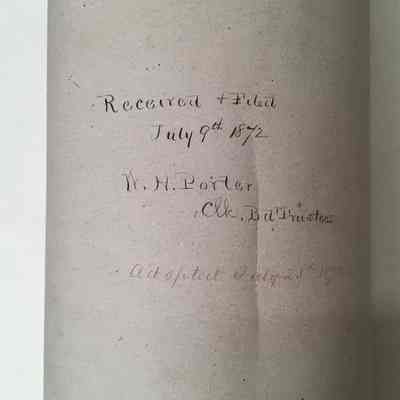 Received + Filed
July 9th 1872
W. H. Porter
Clk. Bd Trustees
Adopted